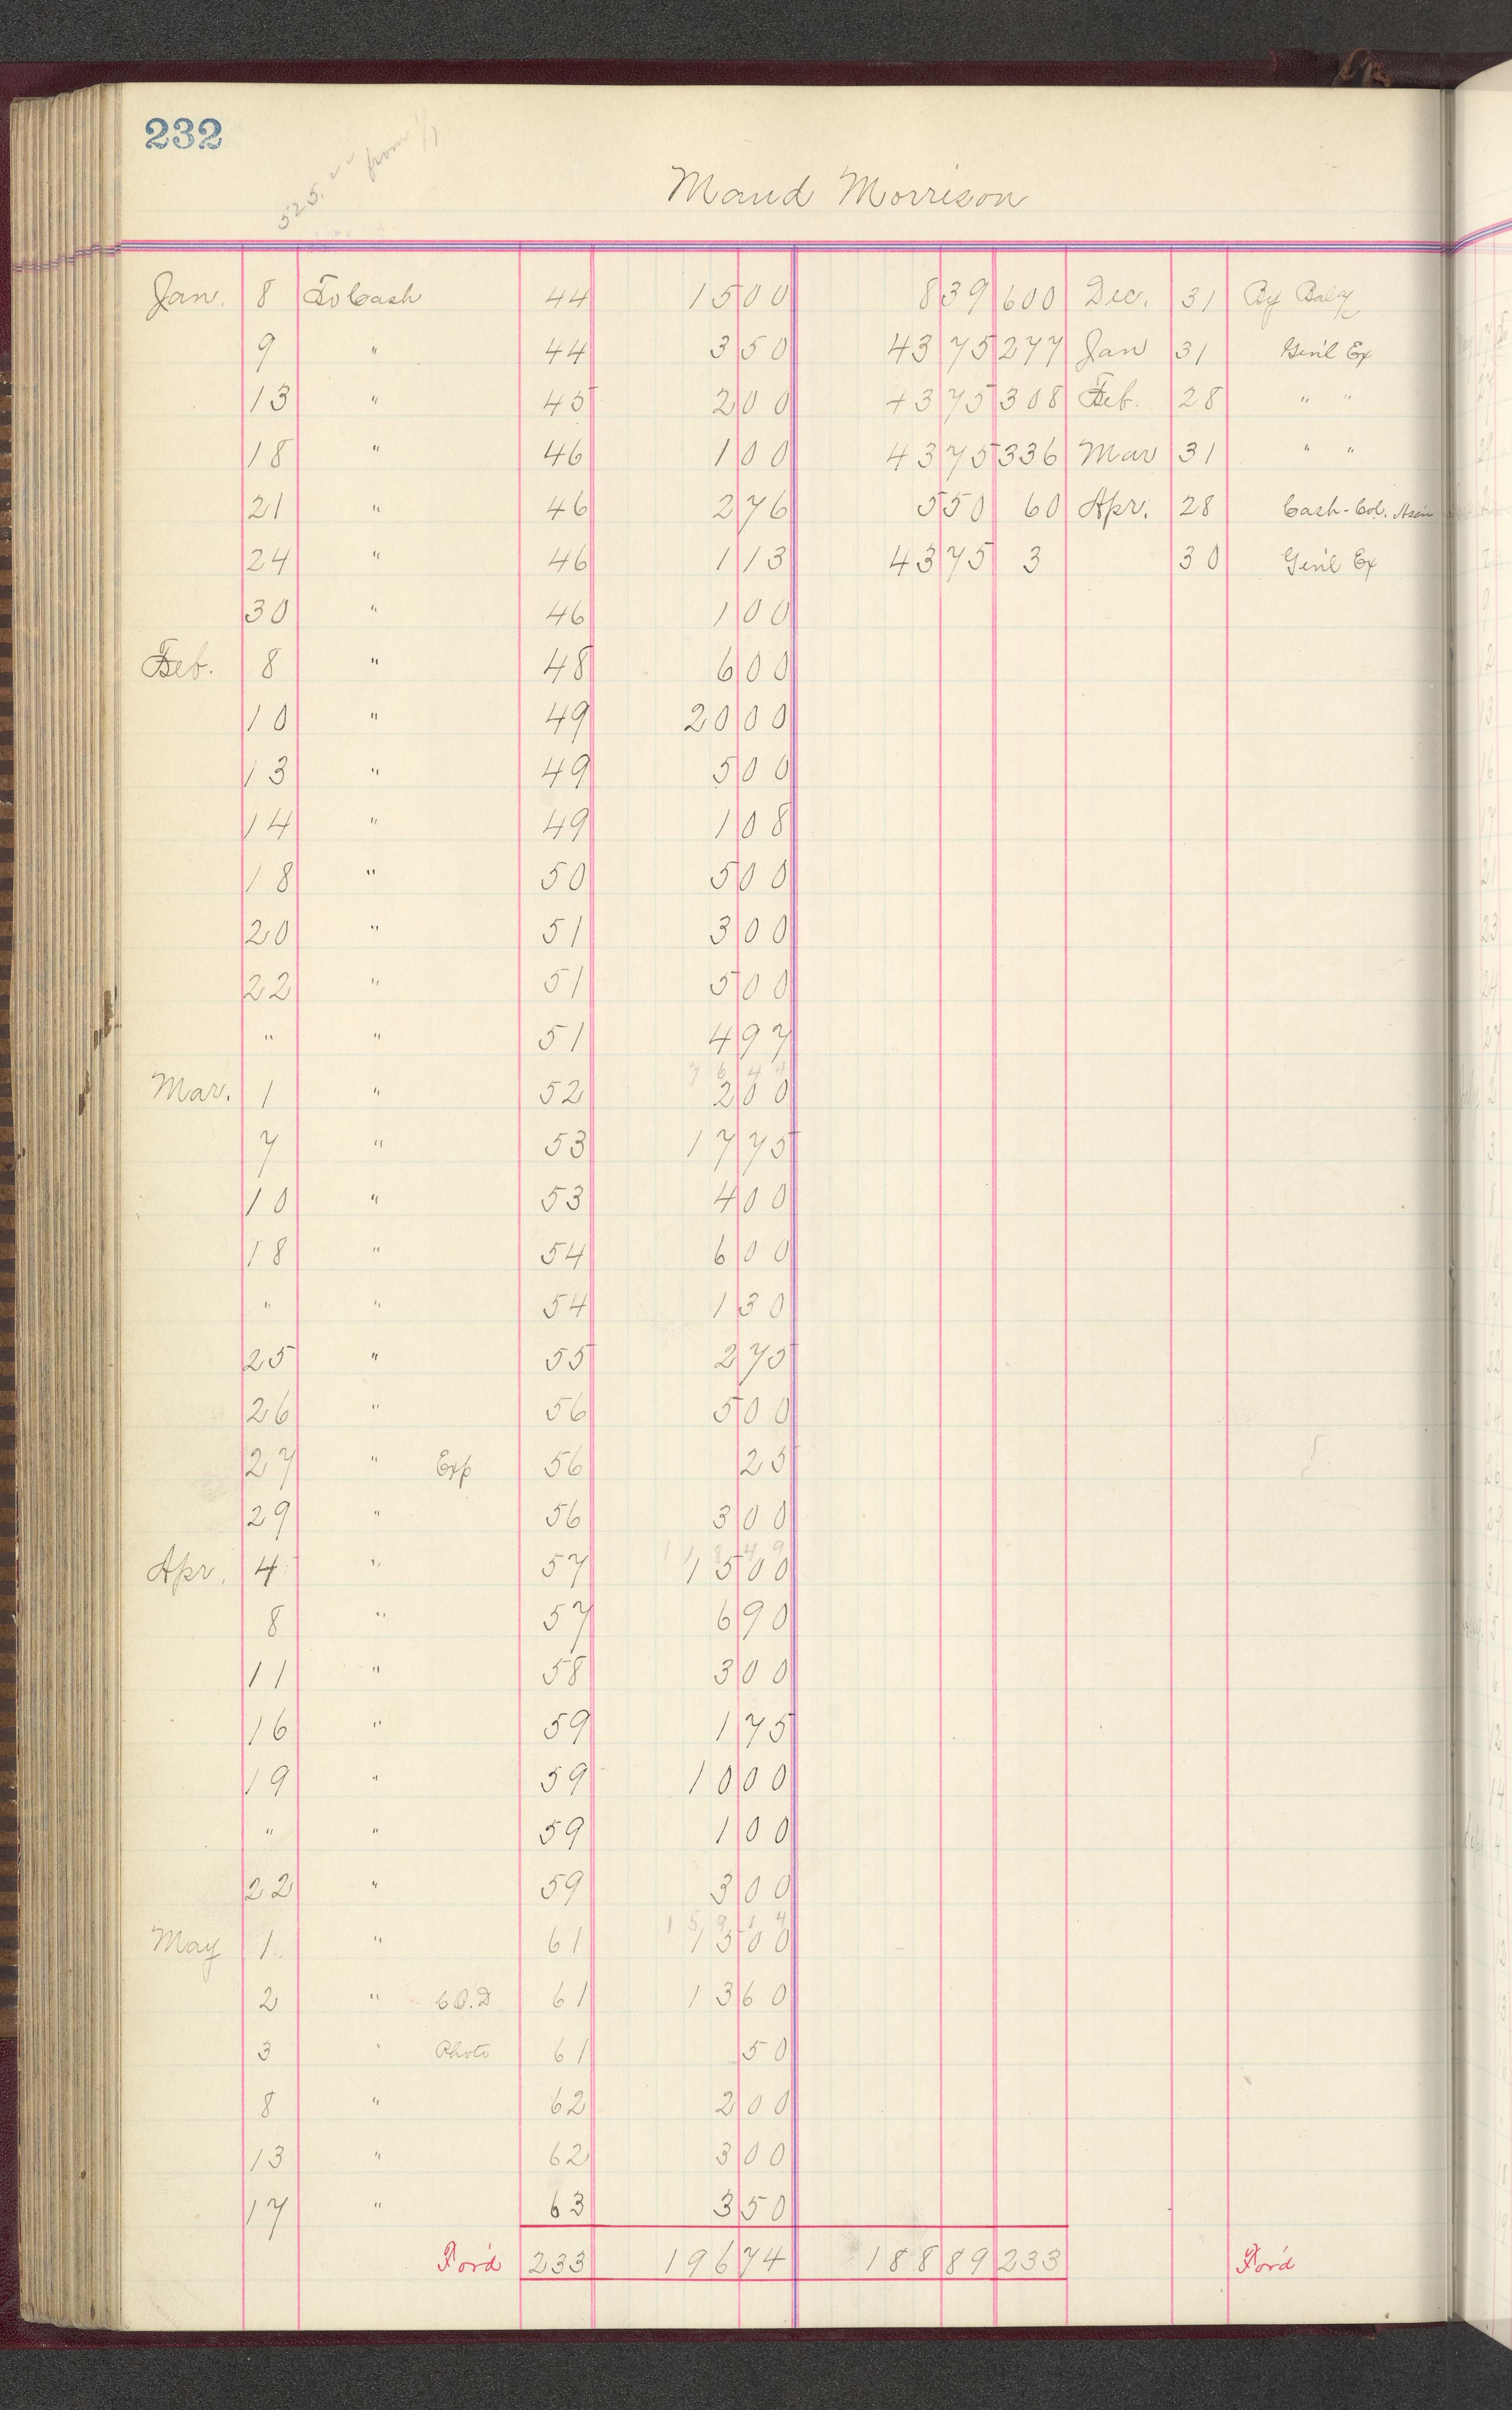 232
525. " " from 1/1
Maud Morrison
Jan. 8 To Cash 44 15 00 8 39 600 Dec. 31 By Balc
9 " 44 3 50 43 75 277 Jan 31 Gen'l Ex
13 " 45 2 00 43 75 308 Feb. 28 " "
18 " 46 1 00 43 75 336 Mar 31 " "
21 " 46 2 76 5 50 60 Apr. 28 Cash-Col.
24 " 46 1 13 43 75 3 30 Gen'l Ex
30 " 46 1 00
Feb. 8 " 48 6 00
10 " 49 20 00
13 " 49 5 00
14 " 49 1 08
18 " 50 5 00
20 " 51 3 00
22 " 51 5 00
" " 51 4 97
76 44
Mar. 1 " 52 2 00
7 " 53 17 75
10 " 53 4 00
18 " 54 6 00
" " 54 1 30
25 " 55 2 75
26 " 56 5 00
27 " Exp 56 25
29 " 56 3 00
118 49
Apr. 4 " 57 15 00
8 " 57 6 90
11 " 58 3 00
16 " 59 1 75
19 " 59 10 00
" " 59 1 00
22 " 59 3 00
159 14
May 1 " 61 15 00
2 " C.O.D 61 13 60
3 " Photo 61 50
8 " 62 2 00
13 " 62 3 00
17 " 63 3 50
For'd 233 196 74 188 89 233 For'd